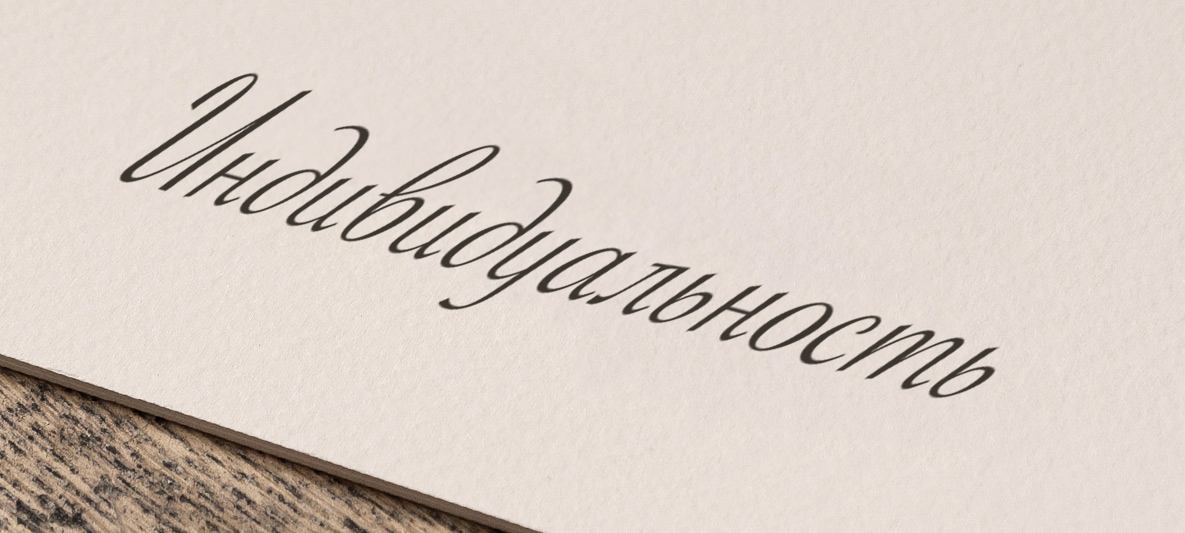 Индивидуальность